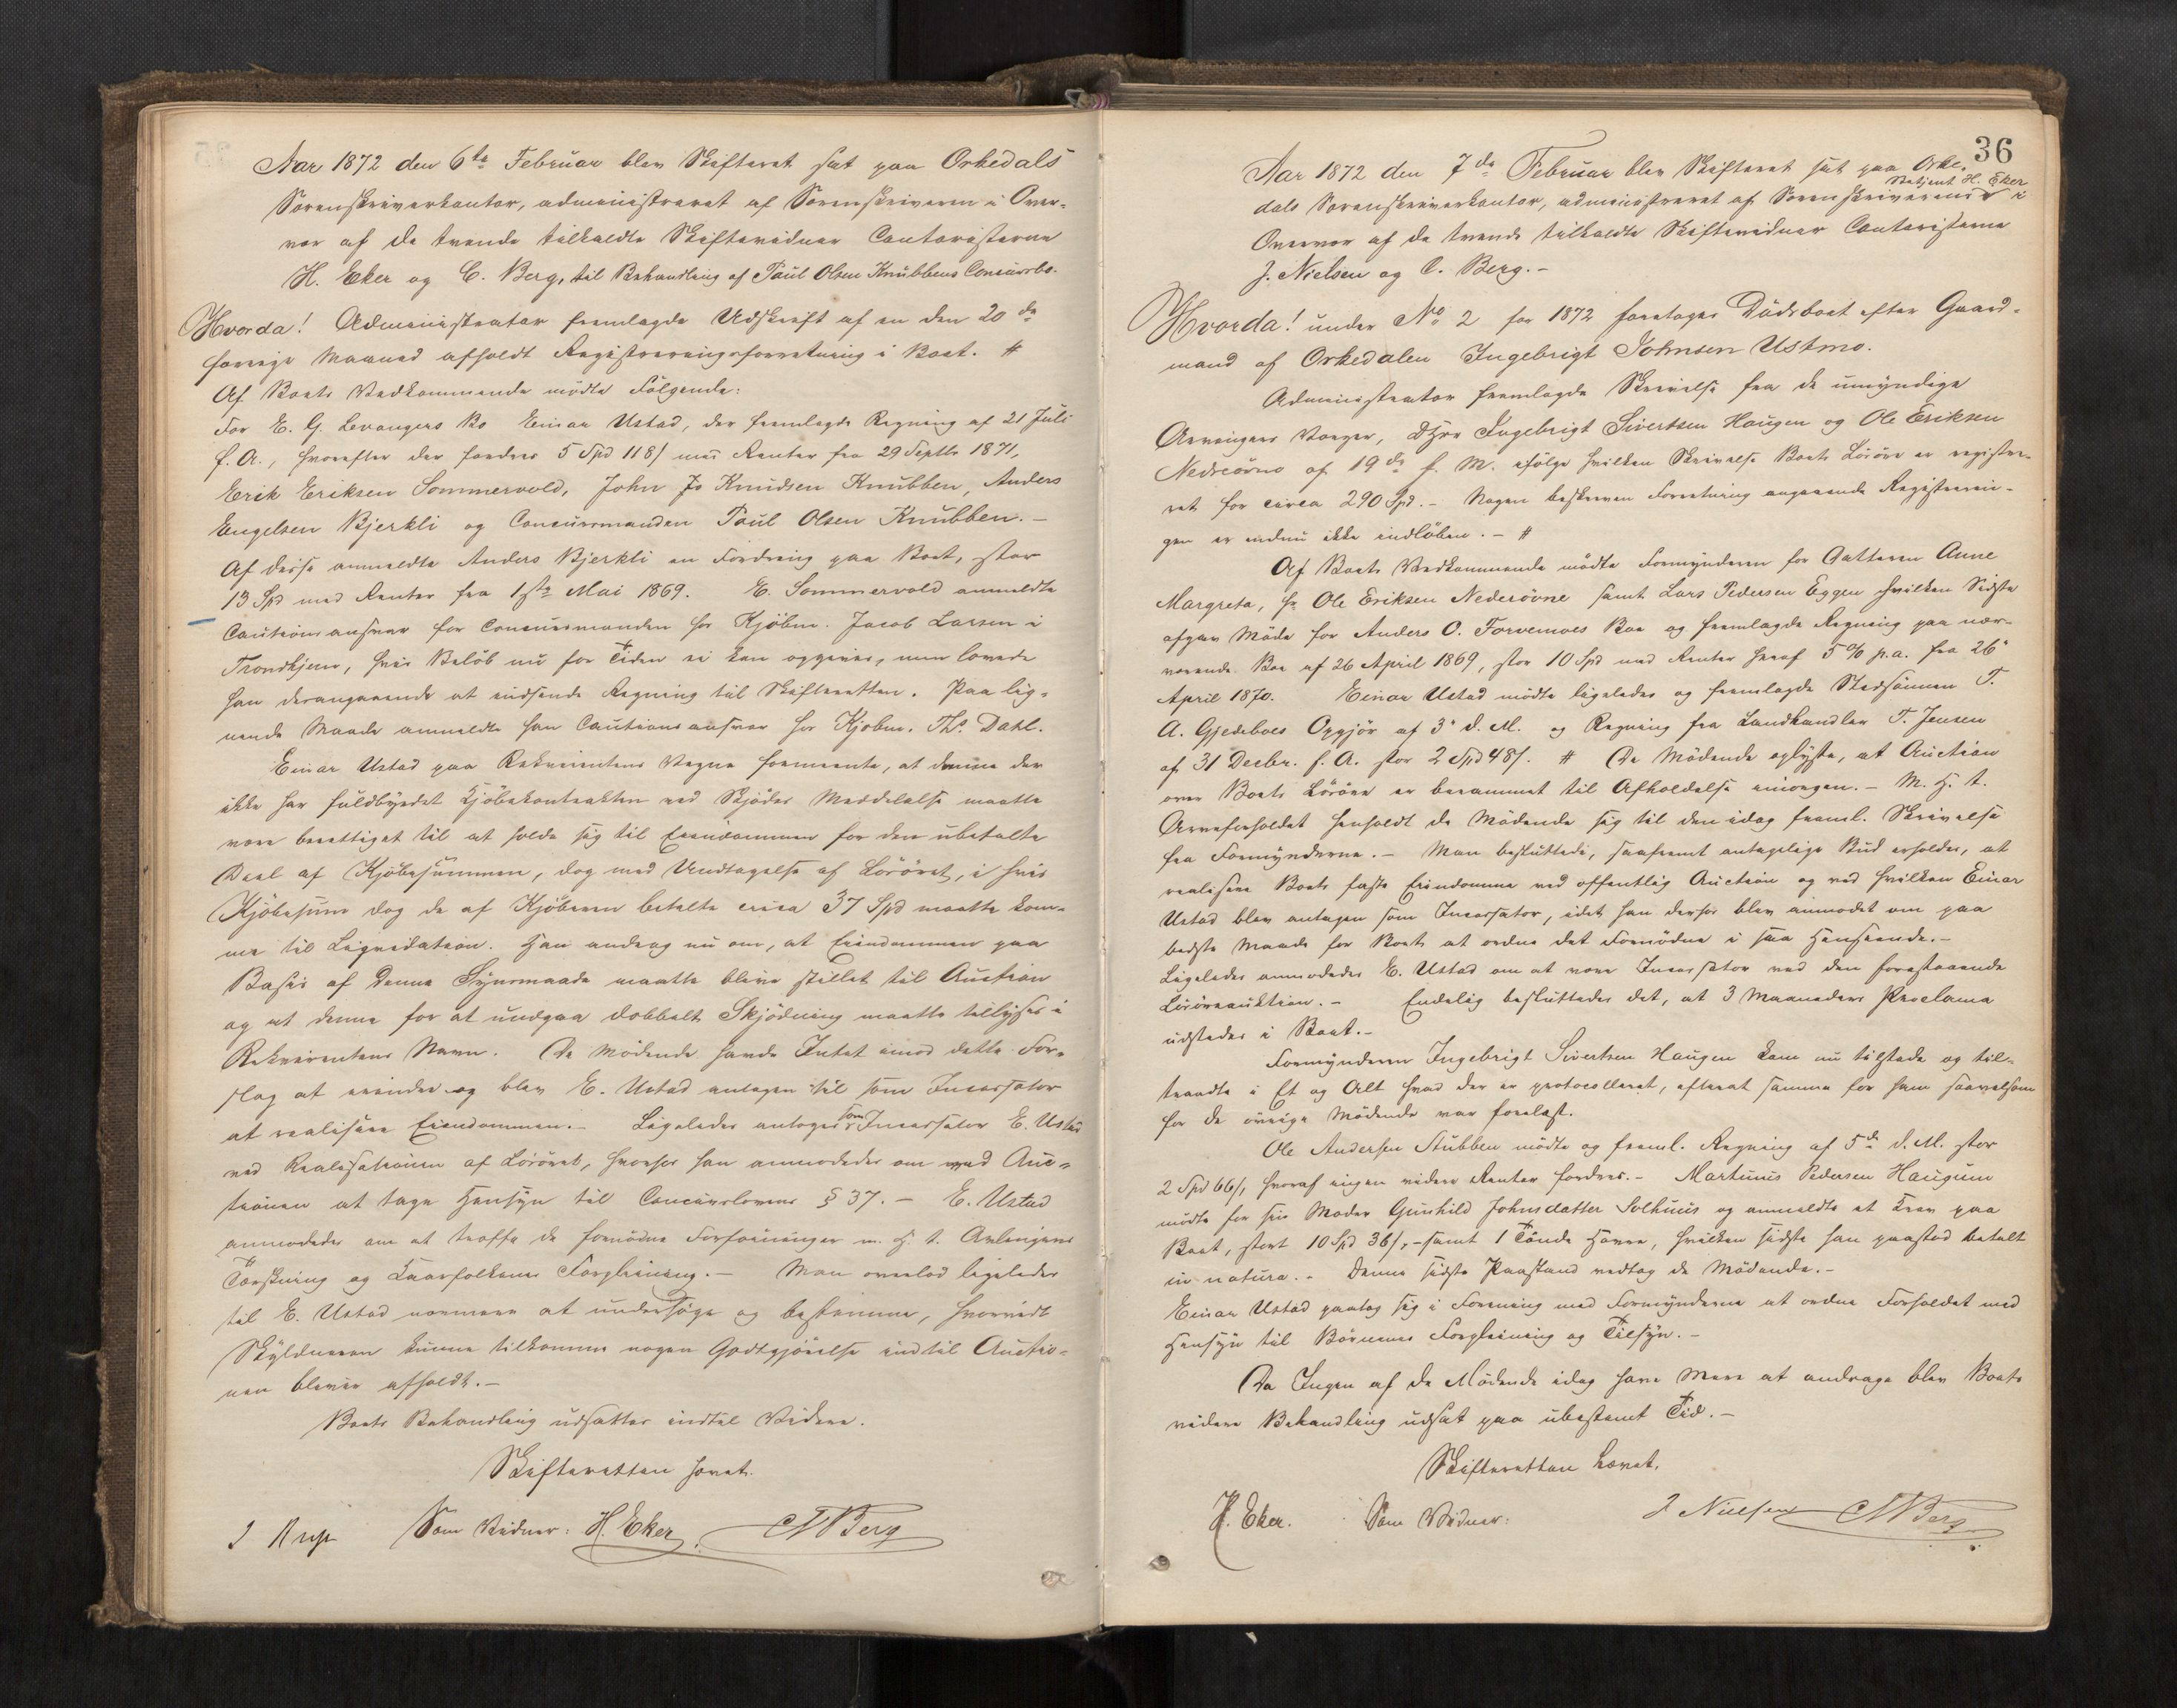 Aar 1872 den 6te Februar blev Skifteret sat paa Orkedals
Sorenskriverkontor, administreret af Sorenskriveren i Over-
vær af de tvende tilkaldte Skiftevidner Contoristerne
H. Eker og C. Berg, til Behandling af Paul Olsen Knubbens Concursbo.
Hvorda! Administrator fremlagde Udskrift af en den 20de
forrige Maaned afholdt Registreringsforretning i Boet. #
Af Boets Vedkommende mødte Følgende:
For E. G. Levangers Bo Einar Ustad, der fremlagde Regning af 21 Juli
f. A., hvorefter der fordres 5 Spd 118 s med Renter fra 29 Septbr 1871,
Erik Eriksen Sommervold, John Jo Knudsen Knubben, Anders
Engelsen Bjerkli og Concursmanden Paul Olsen Knubben. -
Af disse anmeldte Anders Bjerkli en Fordring paa Boet, stor
13 Spd med Renter fra 1ste Mai 1869. E. Sommervold anmeldte
Cautionsansvar for Concursmanden hos Kjøbm. Jacob Larsen i
Trondhjem, hvis Beløb nu for Tiden ei kan opgives, men lovede
han derangaaende at indsende Regning til Skifteretten. Paa lig-
nende Maade anmeldte han Cautionsansvar hos Kjøbm. Ths. Dahl.
Einar Ustad paa Rekvirentens Vegne formeente, at denne der
ikke har fuldbyrdet Kjøbekontrakten ved Skjødes Meddelelse maatte
være berettiget til at holde sig til Eiendommen for den ubetalte
Deel af Kjøbesummen, dog med Undtagelse af Løsøret, i hvis
Kjøbesum dog de af Kjøberen betalte circa 37 Spd maatte kom-
me til Liqvidation. Han androg nu om, at Eiendommen paa
Basis af denne Synsmaade maatte blive stillet til Auction
og at denne for at undgaa dobbelt Skjødning maatte tillyses i
Rekvirentens Navn. De Mødende havde Intet imod dette For-
slag at erindre og blev E. Ustad antagen til som Incassator
at realisere Eiendommen. - Ligeledes antoges som Incassator E. Ustad
ved Realisationen af Løsøret, hvorhos han anmodedes om ved Auc-
tionen at tage Hensyn til Concurslovens § 37. - E. Ustad
anmodedes om at træffe de fornødne Forføininger m. H. t. Avlingens
Tærskning og Kaarfolkenes Forpleining. - Man overlod ligeledes
til E. Ustad nærmere at undersøge og bestemme, hvorvidt
Skyldneren kunne tilkomme nogen Godtgjørelse indtil Auctio-
nen bliver afholdt. -
Boets Behandling udsattes indtil Videre.
Skifteretten hævet.
Som Vidner: H. Eker C Berg
36
Aar 1872 den 7de Februar blev Skifteret sat paa Orke-
dals Sorenskriverkontor, administreret af Sorenskriverens Betjent H. Eker i
Overvær af de tvende tilkaldte Skiftevidner Contoristerne
J. Nielsen og C. Berg. -
Hvorda! under No 2 for 1872 foretoges Dødsboet efter Gaard-
mand af Orkedalen Ingebrigt Johnsen Ustmo.
Administrator fremlagde Skrivelse fra de umyndige
Arvingers Værger, DHrr Ingebrigt Sivertsen Haugen og Ole Eriksen
Nedreøvne af 19de f. M. ifølge hvilken Skrivelse Boets Løsøre er registre-
ret for circa 290 Spd. - Nogen beskreven Forretning angaaende Registrerin-
gen er endnu ikke indløben. - #
Af Boets Vedkommende mødte Formynderen for Datteren Anne
Margreta, Hr Ole Eriksen Nederøvne samt Lars Pedersen Eggen hvilken Sidste
afgav Møde for Anders O. Forvemoes Boe og fremlagde Regning paa nær-
værende Boe af 26 April 1869, stor 10 Spd med Renter heraf 5 % p.a. fra 26"
April 1870. Einar Ustad mødte ligeledes og fremlagde Stedsønnen T.
A. Gjedeboes Opgjør af 3" d. M. og Regning fra Landhandler T. Jensen
af 31 Decbr. f. A. stor 2 Spd 48 s. # De Mødende oplyste, at Auction
over Boets Løsøre er berammet til Afholdelse imorgen. - M. H. t.
Arveforholdet henholdt de Mødende sig til den idag freml. Skrivelse
fra Formynderne. - Man besluttede, saafremt antagelige Bud erholdes, at
realisere Boets faste Eiendomme ved offentlig Auction og ved hvilken Einar
Ustad blev antagen som Incassator, idet han derfor blev anmodet om paa
bedste Maade for Boet at ordne det Fornødne i saa Henseende. -
Ligeledes anmodedes E. Ustad om at være Incassator ved den forestaaende
Løsøreauktion. - Endelig besluttedes det, at 3 Maaneders Proclama
udstedes i Boet. -
Formynderen Ingebrigt Sivertsen Haugen kom nu tilstede og til-
traadte i Et og Alt hvad der er protocolleret, efterat samme for ham saavelsom
for de øvrige Mødende var forelæst.
Ole Andersen Stubben mødte og freml. Regning af 5de d. M. stor
2 Spd 66 s, hvoraf ingen videre Renter fordres. - Martinus Pedersen Haugum
mødte for sin Moder Gunhild Johnsdatter Solhuus og anmeldte et Krav paa
Boet, stort 10 Spd 36 s, - samt 1 Tønde Havre, hvilken sidste han paastod betalt
in natura. - Denne sidste Paastand vedtog de Mødende. -
Einar Ustad paatog sig i Forening med Formynderne at ordne Forholdet med
Hensyn til Børnenes Forpleining og Tilsyn. -
Da Ingen af de Mødende idag have Mere at andrage blev Boets
videre Behandling udsat paa ubestemt Tid. -
Skifteretten hævet.
H. Eker. Som Vidner: J Nielsen C Berg